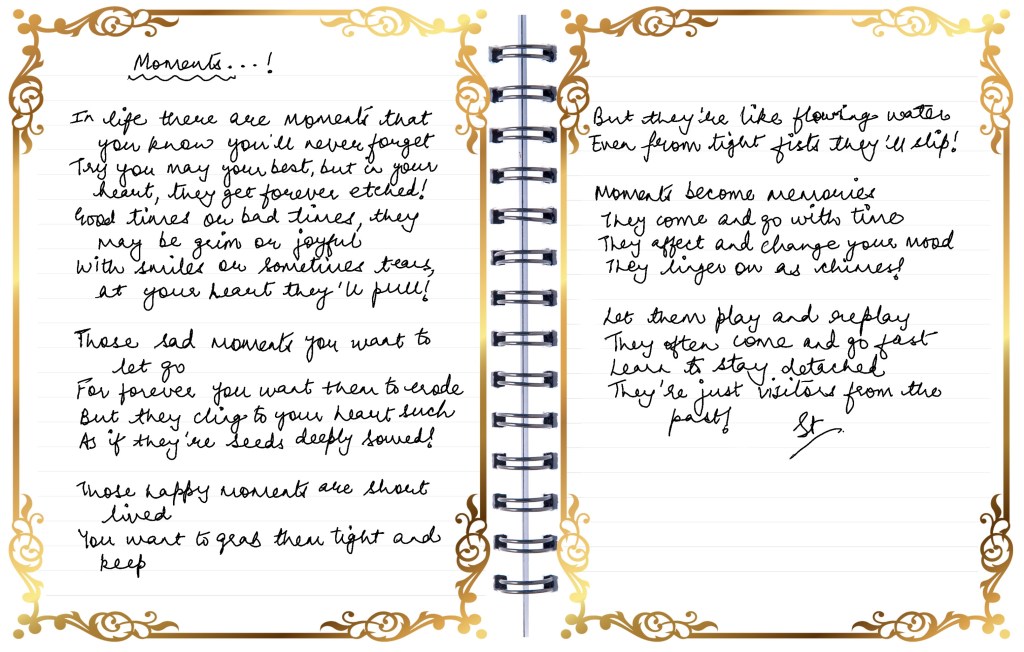 Moments...!
In life there are moments that
you know you'll never forget
Try you may your best, but in your
heart, they get forever etched!
Good times or bad times, they
may be grim or joyful
With smiles or sometimes tears,
at your heart they'll pull!
Those sad moments you want to
let go
For forever you want them to erode
But they cling to your heart such
As if they're seeds deeply sowed!
Those happy moments are short
lived
You want to grab them tight and
keep
But they're like flowing water
Even from tight fists they'll slip!
Moments become memories
They come and go with time
They affect and change your mood
They linger on as chimes!
Let them play and replay
They often come and go fast
Learn to stay detached
They're just visitors from the
past!